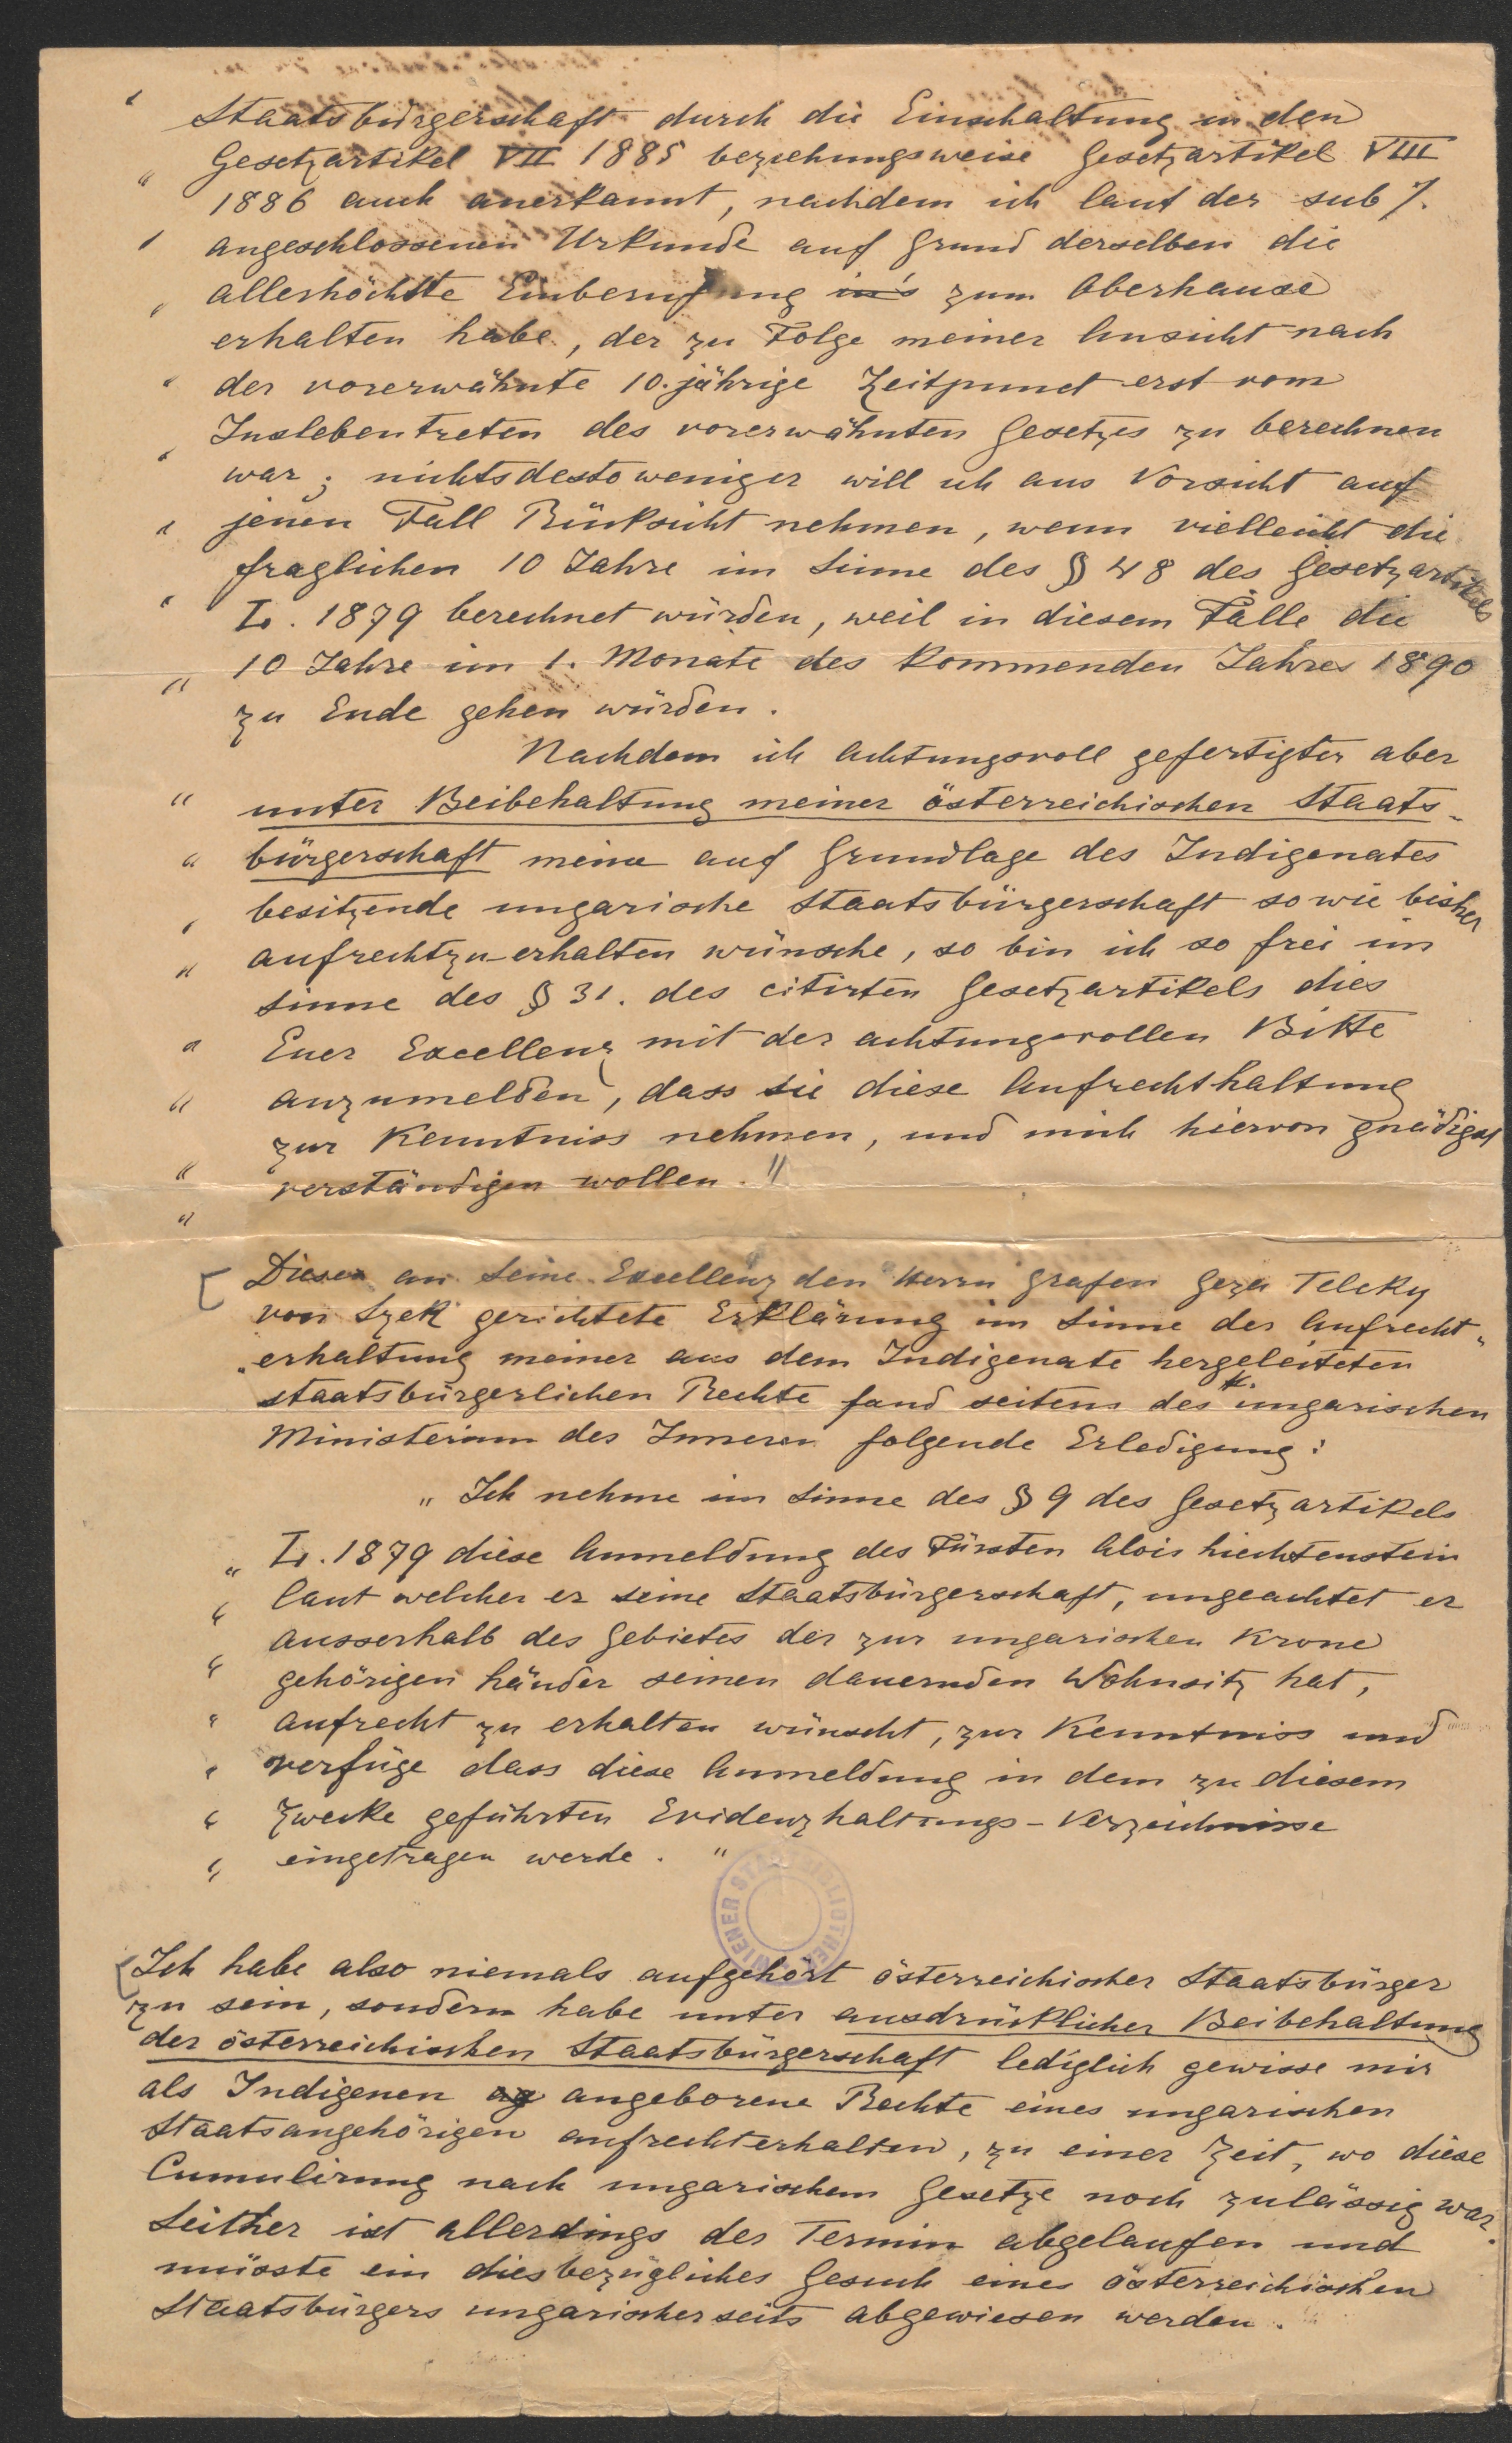 „ Staatsbürgerschaft durch die Einschaltung in den
Gesetzartikel VII 1885 beziehungsweise Gesetzartikel VIII
„ 1886 auch anerkannt, nachdem ich laut der sub 7.
„ angeschlossenen Urkunde auf Grund derselben die
„ allerhöchste Einberufung in's zum Oberhause
erhalten habe, der zu Folge meiner Ansicht nach
„ der vorerwähnte 10.jährige Zeitpunct erst vom
Inslebentreten des vorerwähnten Gesetzes zu berechnen
„ war; nichtsdestoweniger will ich aus Vorsicht auf
„ jenen Fall Rücksicht nehmen, wenn vielleicht die
fraglichen 10 Jahre im Sinne des § 48 des Gesetzartikels
„ L. 1879 berechnet würden, weil in diesem Falle die
„ 10 Jahre im 1. Monate des kommenden Jahres 1890
zu Ende gehen würden.
Nachdem ich achtungsvoll gefertigter aber
„ unter Beibehaltung meiner österreichischen Staats-
„ bürgerschaft meine auf Grundlage des Indigenates
„ besitzende ungarische Staatsbürgerschaft sowie bisher
„ aufrechtzu-erhalten wünsche, so bin ich so frei im
Sinne des § 31. des citirten Gesetzartikels dies
„ Euer Excellenz mit der achtungsvollen Bitte
„ anzumelden, dass Sie diese Aufrechthaltung
zur Kenntniss nehmen, und mich hievon gnädigst
„ verständigen wollen."
„
[ Diese an Seine Excellenz den Herrn Grafen Geza Teleky
von Szek gerichtete Erklärung im Sinne der Aufrecht-
erhaltung meiner aus dem Indigenate hergeleiteten
staatsbürgerlichen Rechte fand seitens des k. ungarischen
Ministerium des Inneren folgende Erledigung:
„ Ich nehme im Sinne des § 9 des Gesetzartikels
„ L. 1879 diese Anmeldung des Fürsten Alois Liechtenstein
„ laut welcher er seine Staatsbürgerschaft, ungeachtet er
ausserhalb des Gebietes der zur ungarischen Krone
„ gehörigen Länder seinen dauernden Wohnsitz hat,
„ aufrecht zu erhalten wünscht, zur Kenntniss und
„ verfüge dass diese Anmeldung in dem zu diesem
„ Zwecke geführten Evidenzhaltungs-Verzeichnisse
„ eingetragen werde. "
WIENER STADTBIBLIOTHEK
[ Ich habe also niemals aufgehört österreichischer Staatsbürger
zu sein, sondern habe unter ausdrücklicher Beibehaltung
der österreichischen Staatsbürgerschaft lediglich gewisse mir
als Indigenen ag angeborene Rechte eines ungarischen
Staatsangehörigen aufrechterhalten, zu einer Zeit, wo diese
Cumulirung nach ungarischem Gesetze noch zulässig war.
Seither ist allerdings der Termin abgelaufen und
müsste ein diesbezügliches Gesuch eines österreichischen
Staatsbürgers ungarischerseits abgewiesen werden.